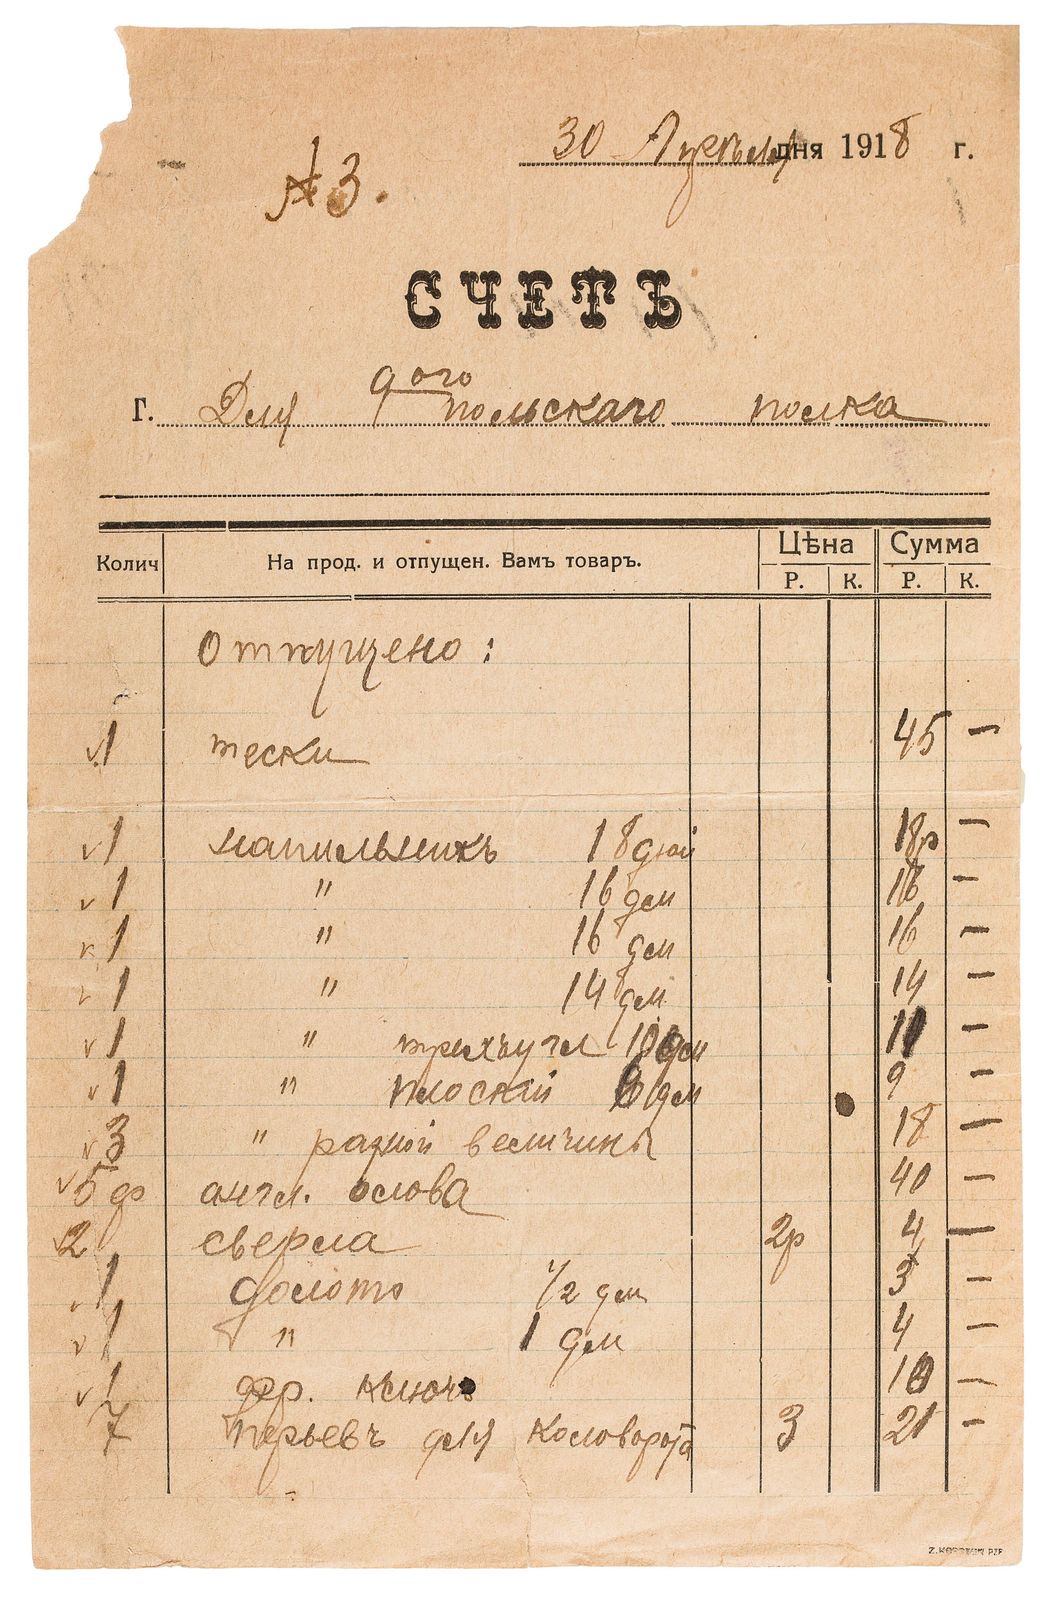 30 Апреля дня 1918 г.
№ 3.
СЧЕТЪ
Г. Для 9ого польскаго полка
Колич На прод. и отпущен. Вамъ товаръ. Цѣна Сумма
Р. К. Р. К.
Отпущено:
1 тески 45 —
1 напильникъ 18 дюй 18р —
1 " 16 дм 16 —
1 " 16 дм 16 —
1 " 14 дм 14 —
1 " трехъугл 10 дм 11 —
1 " плоский 8 дм 9 —
3 " разной величины 18 —
5 ф англ. олова 40 —
2 сверла 2р 4 —
1 долото 1/2 дм 3 —
1 " 1 дм 4 —
1 фр. ключъ 10 —
7 перьевъ для коловорота 3 21 —